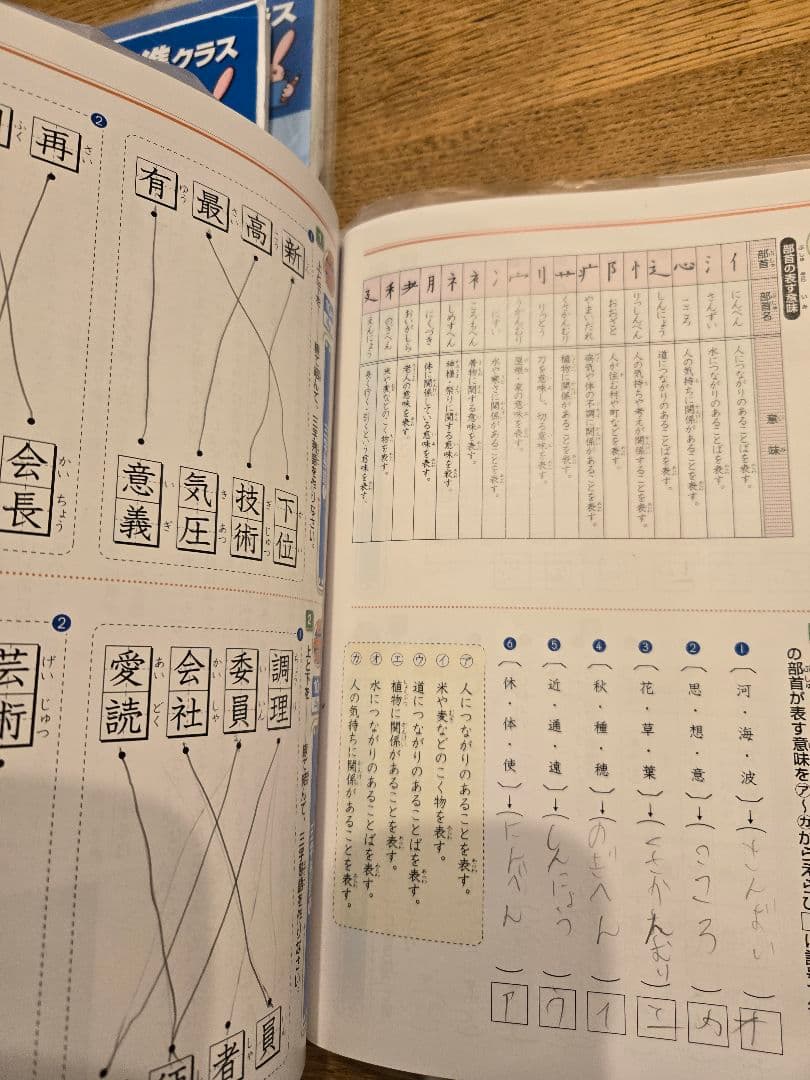 準クラス
クラス
部首の表す意味
ぶしゅ
あらわ
いみ
部首
ぶしゅ
部首名
意味
イ
にんべん
人につながりのあることを表す。
氵
さんずい
水につながりのあることばを表す。
心
こころ
人の気持ちに関係があることを表す。
辶
しんにょう
道につながりのあることばを表す。
忄
りっしんべん
人の気持ちや考えが関係することを表す。
阝
おおざと
人が住む村や町などを表す。
疒
やまいだれ
病気や体の不調に関係があることを表す。
艹
くさかんむり
植物に関係があることを表す。
刂
りっとう
刀を意味し、切る意味を表す。
宀
うかんむり
屋根・家の意味を表す。
冫
にすい
水や寒さに関係があることを表す。
衤
ころもへん
着物に関する意味を表す。
礻
しめすへん
神様・祭りに関する意味を表す。
月
にくづき
体に関係している意味を表す。
耂
おいがしら
老人の意味を表す。
禾
のぎへん
米や麦などのこく物を表す。
廴
えんにょう
長く行く・引くという意味を表す。
の部首が表す意味を㋐～㋕からえらび
❶(河・海・波)→(さんずい)オ
❷(思・想・意)→(こころ)カ
❸(花・草・葉)→(くさかんむり)エ
❹(秋・種・穂)→(のぎへん)イ
❺(近・通・遠)→(しんにょう)ウ
❻(休・体・使)→(にんべん)ア
㋐ 人につながりのあることを表す。
㋑ 米や麦などのこく物を表す。
㋒ 道につながりのあることばを表す。
㋓ 植物に関係があることを表す。
㋔ 水につながりのあることばを表す。
㋕ 人の気持ちに関係があることを表す。
1
❶
新
高
最
さい
有
ゆう
下位
技術
ぎじゅつ
気圧
きあつ
意義
いぎ
❷
再
さい
ふく
会長
かいちょう
2
❶
調理
委員
いいん
会社
かいしゃ
愛読
あいどく
員
者
しゃ
❷
芸術
げいじゅつ